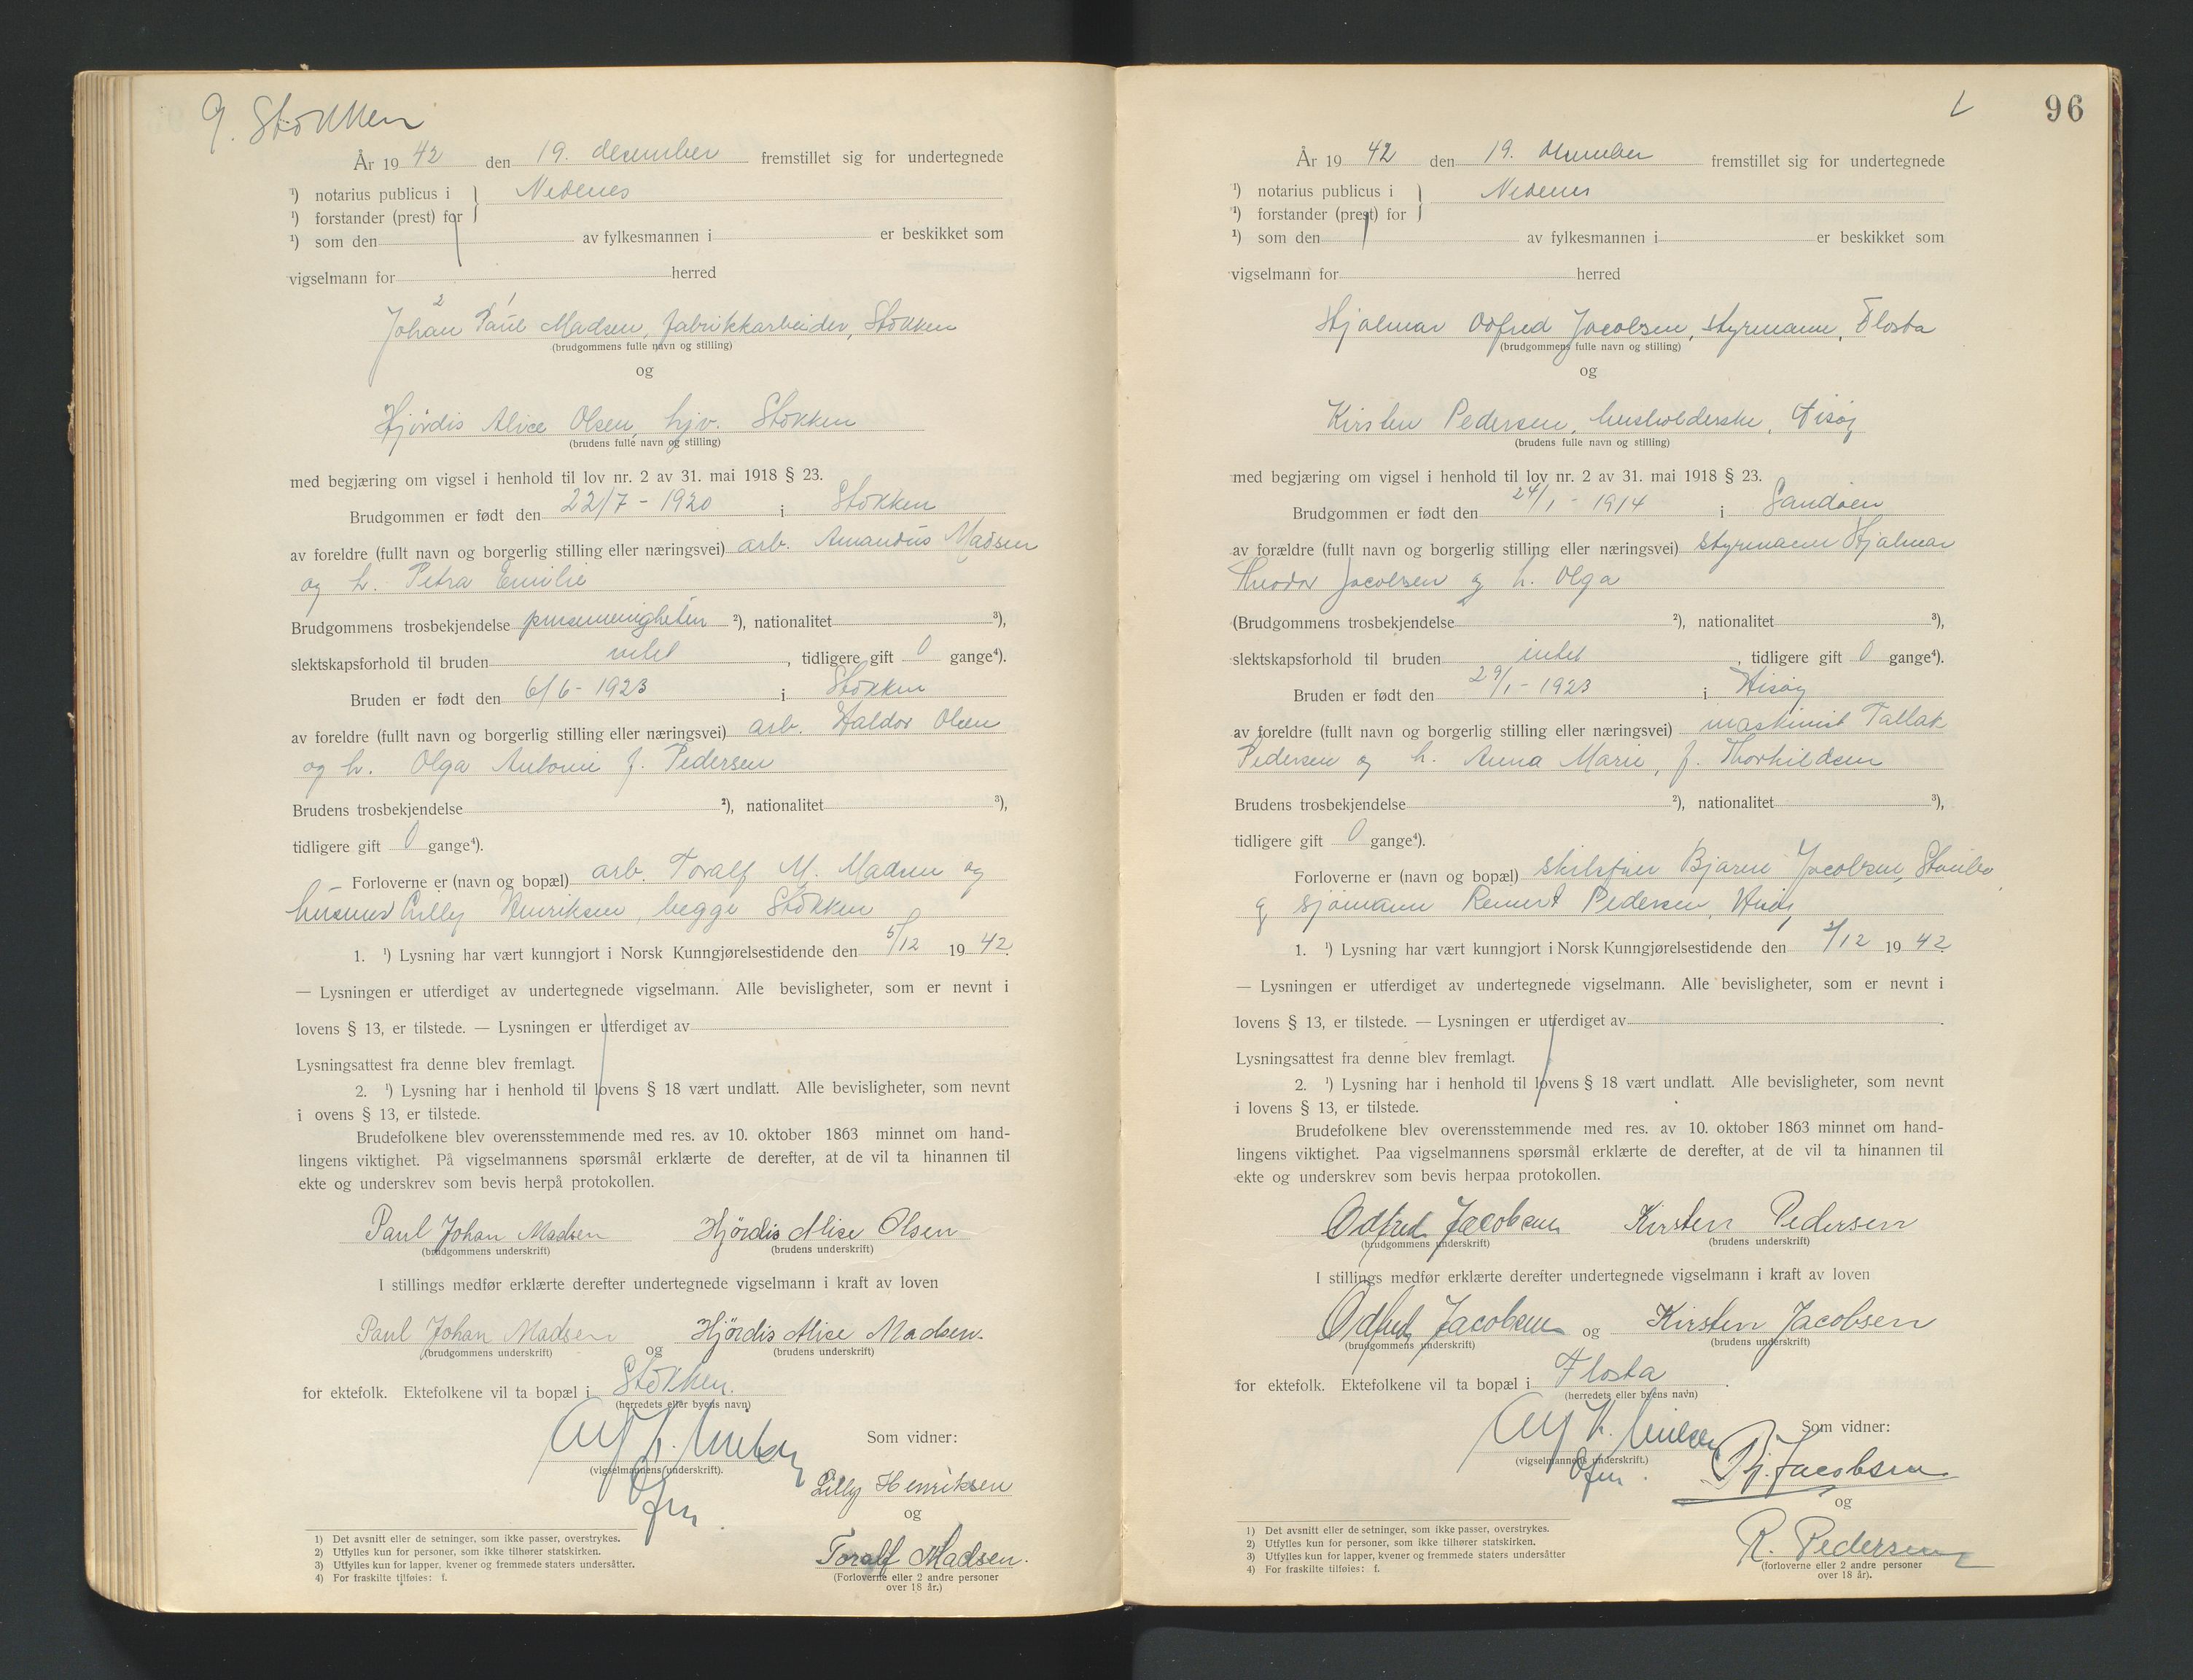 G. Stokken
År 19 42 den 19. desember fremstillet sig for undertegnede
¹) notarius publicus i } Nedenes
¹) forstander (prest) for
¹) som den av fylkesmannen i er beskikket som
vigselmann for herred
2 1
Johan Paul Madsen, fabrikkarbeider, Stokken
(brudgommens fulle navn og stilling)
og
Hjördis Alice Olsen, hjv. Stokken
(brudens fulle navn og stilling)
med begjæring om vigsel i henhold til lov nr. 2 av 31. mai 1918 § 23.
Brudgommen er født den 22/7 - 1920 i Stokken
av foreldre (fullt navn og borgerlig stilling eller næringsvei) arb. Amandus Madsen
og h. Petra Emilie
Brudgommens trosbekjendelse pinsemenigheten ²), nationalitet ³),
slektskapsforhold til bruden intet , tidligere gift 0 gange⁴).
Bruden er født den 6/6 - 1923 i Stokken
av foreldre (fullt navn og borgerlig stilling eller næringsvei) arb. Haldor Olsen
og h. Olga Antonie f. Pedersen
Brudens trosbekjendelse ²), nationalitet ³),
tidligere gift 0 gange⁴).
Forloverne er (navn og bopæl) arb. Toralf M. Madsen og
Lilly Henriksen, begge Stokken
1. ¹) Lysning har vært kunngjort i Norsk Kunngjørelsestidende den 5/12 19 42.
— Lysningen er utferdiget av undertegnede vigselmann. Alle bevisligheter, som er nevnt i
lovens § 13, er tilstede. — Lysningen er utferdiget av
Lysningsattest fra denne blev fremlagt.
2. ¹) Lysning har i henhold til lovens § 18 vært undlatt. Alle bevisligheter, som nevnt
i ovens § 13, er tilstede.
Brudefolkene blev overensstemmende med res. av 10. oktober 1863 minnet om hand-
lingens viktighet. På vigselmannens spørsmål erklærte de derefter, at de vil ta hinannen til
ekte og underskrev som bevis herpå protokollen.
Paul Johan Madsen Hjördis Alice Olsen
(brudgommens underskrift) (brudens underskrift)
I stillings medfør erklærte derefter undertegnede vigselmann i kraft av loven
Paul Johan Madsen og Hjördis Alice Madsen.
(brudgommens underskrift) (brudens underskrift)
for ektefolk. Ektefolkene vil ta bopæl i Stokken.
(herredets eller byens navn)
Som vidner:
(vigselmannens underskrift).
Lilly Henriksen
og
Toralf Madsen.
(Forloverne eller 2 andre personer
over 18 år.)
1) Det avsnitt eller de setninger, som ikke passer, overstrykes.
2) Utfylles kun for personer, som ikke tilhører statskirken.
3) Utfylles kun for lapper, kvener og fremmede staters undersåtter.
4) For fraskilte tilføies: f.
96
År 19 42 den 19. desember fremstillet sig for undertegnede
¹) notarius publicus i } Nedenes
¹) forstander (prest) for
¹) som den av fylkesmannen i er beskikket som
vigselmann for herred
Hjalmar Odfred Jacobsen, styrmann, Flosta
(brudgommens fulle navn og stilling)
og
Kirsten Pedersen, husholderske, Hisøy
(brudens fulle navn og stilling)
med begjæring om vigsel i henhold til lov nr. 2 av 31. mai 1918 § 23.
Brudgommen er født den 24/1 - 1914 i Sandøen
av forældre (fullt navn og borgerlig stilling eller næringsvei) styrmann Hjalmar
Theodor Jacobsen og h. Olga
(Brudgommens trosbekjendelse ²), nationalitet ³),
slektskapsforhold til bruden intet , tidligere gift 0 gange⁴).
Bruden er født den 29/1 - 1923 i Hisøy
av foreldre (fullt navn og borgerlig stilling eller næringsvei) maskinist Tallak
Pedersen og h. Anna Marie, f. Thorkildsen
Brudens trosbekjendelse ²), nationalitet ³),
tidligere gift 0 gange⁴).
Forloverne er (navn og bopæl) Bjarne Jacobsen,
og sjömann Reinert Pedersen, Hisöy
1. ¹) Lysning har vært kunngjort i Norsk Kunngjørelsestidende den 19 42.
— Lysningen er utferdiget av undertegnede vigselmann. Alle bevisligheter, som er nevnt i
lovens § 13, er tilstede. — Lysningen er utferdiget av
Lysningsattest fra denne blev fremlagt.
2. ¹) Lysning har i henhold til lovens § 18 vært undlatt. Alle bevisligheter, som nevnt
i lovens § 13, er tilstede.
Brudefolkene blev overensstemmende med res. av 10. oktober 1863 minnet om hand-
lingens viktighet. Paa vigselmannens spørsmål erklærte de derefter, at de vil ta hinannen til
ekte og underskrev som bevis herpaa protokollen.
Odfred Jacobsen Kirsten Pedersen
(brudgommens underskrift) (brudens underskrift)
I stillings medfør erklærte derefter undertegnede vigselmann i kraft av loven
Odfred Jacobsen og Kirsten Jacobsen
(brudgommens underskrift) (brudens underskrift)
for ektefolk. Ektefolkene vil ta bopæl i Flosta
(herredets eller byens navn)
Som vidner:
(vigselmannens underskrift.)
Bj. Jacobsen
og
R. Pedersen
(forloverne eller 2 andre personer
over 18 år).
1) Det avsnitt eller de setninger, som ikke passer, overstrykes.
2) Utfylles kun for personer, som ikke tilhører statskirken.
3) Utfylles kun for lapper, kvener og fremmede staters undersåtter
4) For fraskilte tilføies: f.